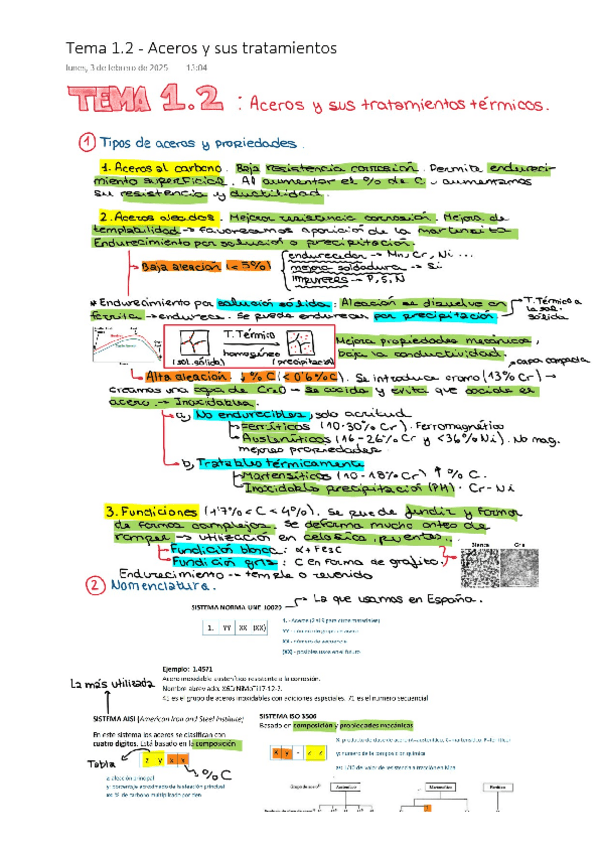 Tema 1.2 - Aceros y sus tratamientos
lunes, 3 de febrero de 2025 13:04
TEMA 1.2 : Aceros y sus tratamientos térmicos.
1 Tipos de aceros y propiedades.
1. Aceros al carbono. Baja resistencia corrosión. Permite endureci-
miento superficial. Al aumentar el % de C, aumentamos
su resistencia y ductilidad.
2. Aceros aleados. Mejorar resistencia corrosión. Mejora de
templabilidad → favorecemos aparición de la martensita
Endurecimiento por solución o precipitación.
Baja aleación (< 5%)
endurecedor → Mn, Cr, Ni ...
mejora soldadura → Si
impurezas → P, S, N
* Endurecimiento por solución sólida: Aleación se disuelve en
ferrita → endurece. Se puede endurecer por precipitación
T. Térmico a
la sol.
sólida
T. Térmico
homogéneo
(sol. sólida) (precipitación)
Mejora propiedades mecánicas,
baja la conductividad.
capa compacta
Alta aleación ↓ % C (< 0'6% C). Se introduce cromo (13% Cr) →
creamos una capa de → se oxida y evita que oxide el
acero. → Inoxidables.
a) No endurecibles, solo acritud
Ferríticos (10-30% Cr). Ferromagnético
Austeníticos (16-26% Cr y <36% Ni). No mag.
mejores propiedades
b) Tratables térmicamente
Martensíticos (10-18% Cr) ↑ % C.
Inoxidable precipitación (PH). Cr-Ni
3. Fundiciones (1'7% < C < 4%). Se puede fundir y forma
de formas complejas. Se deforma mucho antes de
romper → utilización en celosías, puentes...
Fundición blanca: α + Fe3C
Fundición gris: C en forma de grafito.
Blanca Gris
Endurecimiento → temple o revenido
2 Nomenclatura.
SISTEMA NORMA UNE 10027
La que usamos en España.
1. YY XX (XX)
Ejemplo: 1.4571
Acero inoxidable austenítico resistente a la corrosión.
Nombre abreviado: X6CrNiMoTi17-12-2.
La más utilizada
SISTEMA AISI (American Iron and Steel Institute)
SISTEMA ISO 3506
Basado en composición y propiedades mecánicas
En este sistema los aceros se clasifican con
cuatro dígitos. Está basado en la composición
Tabla
z y x x
% C
X y - z z
Austenítico Martensítico Ferrítico